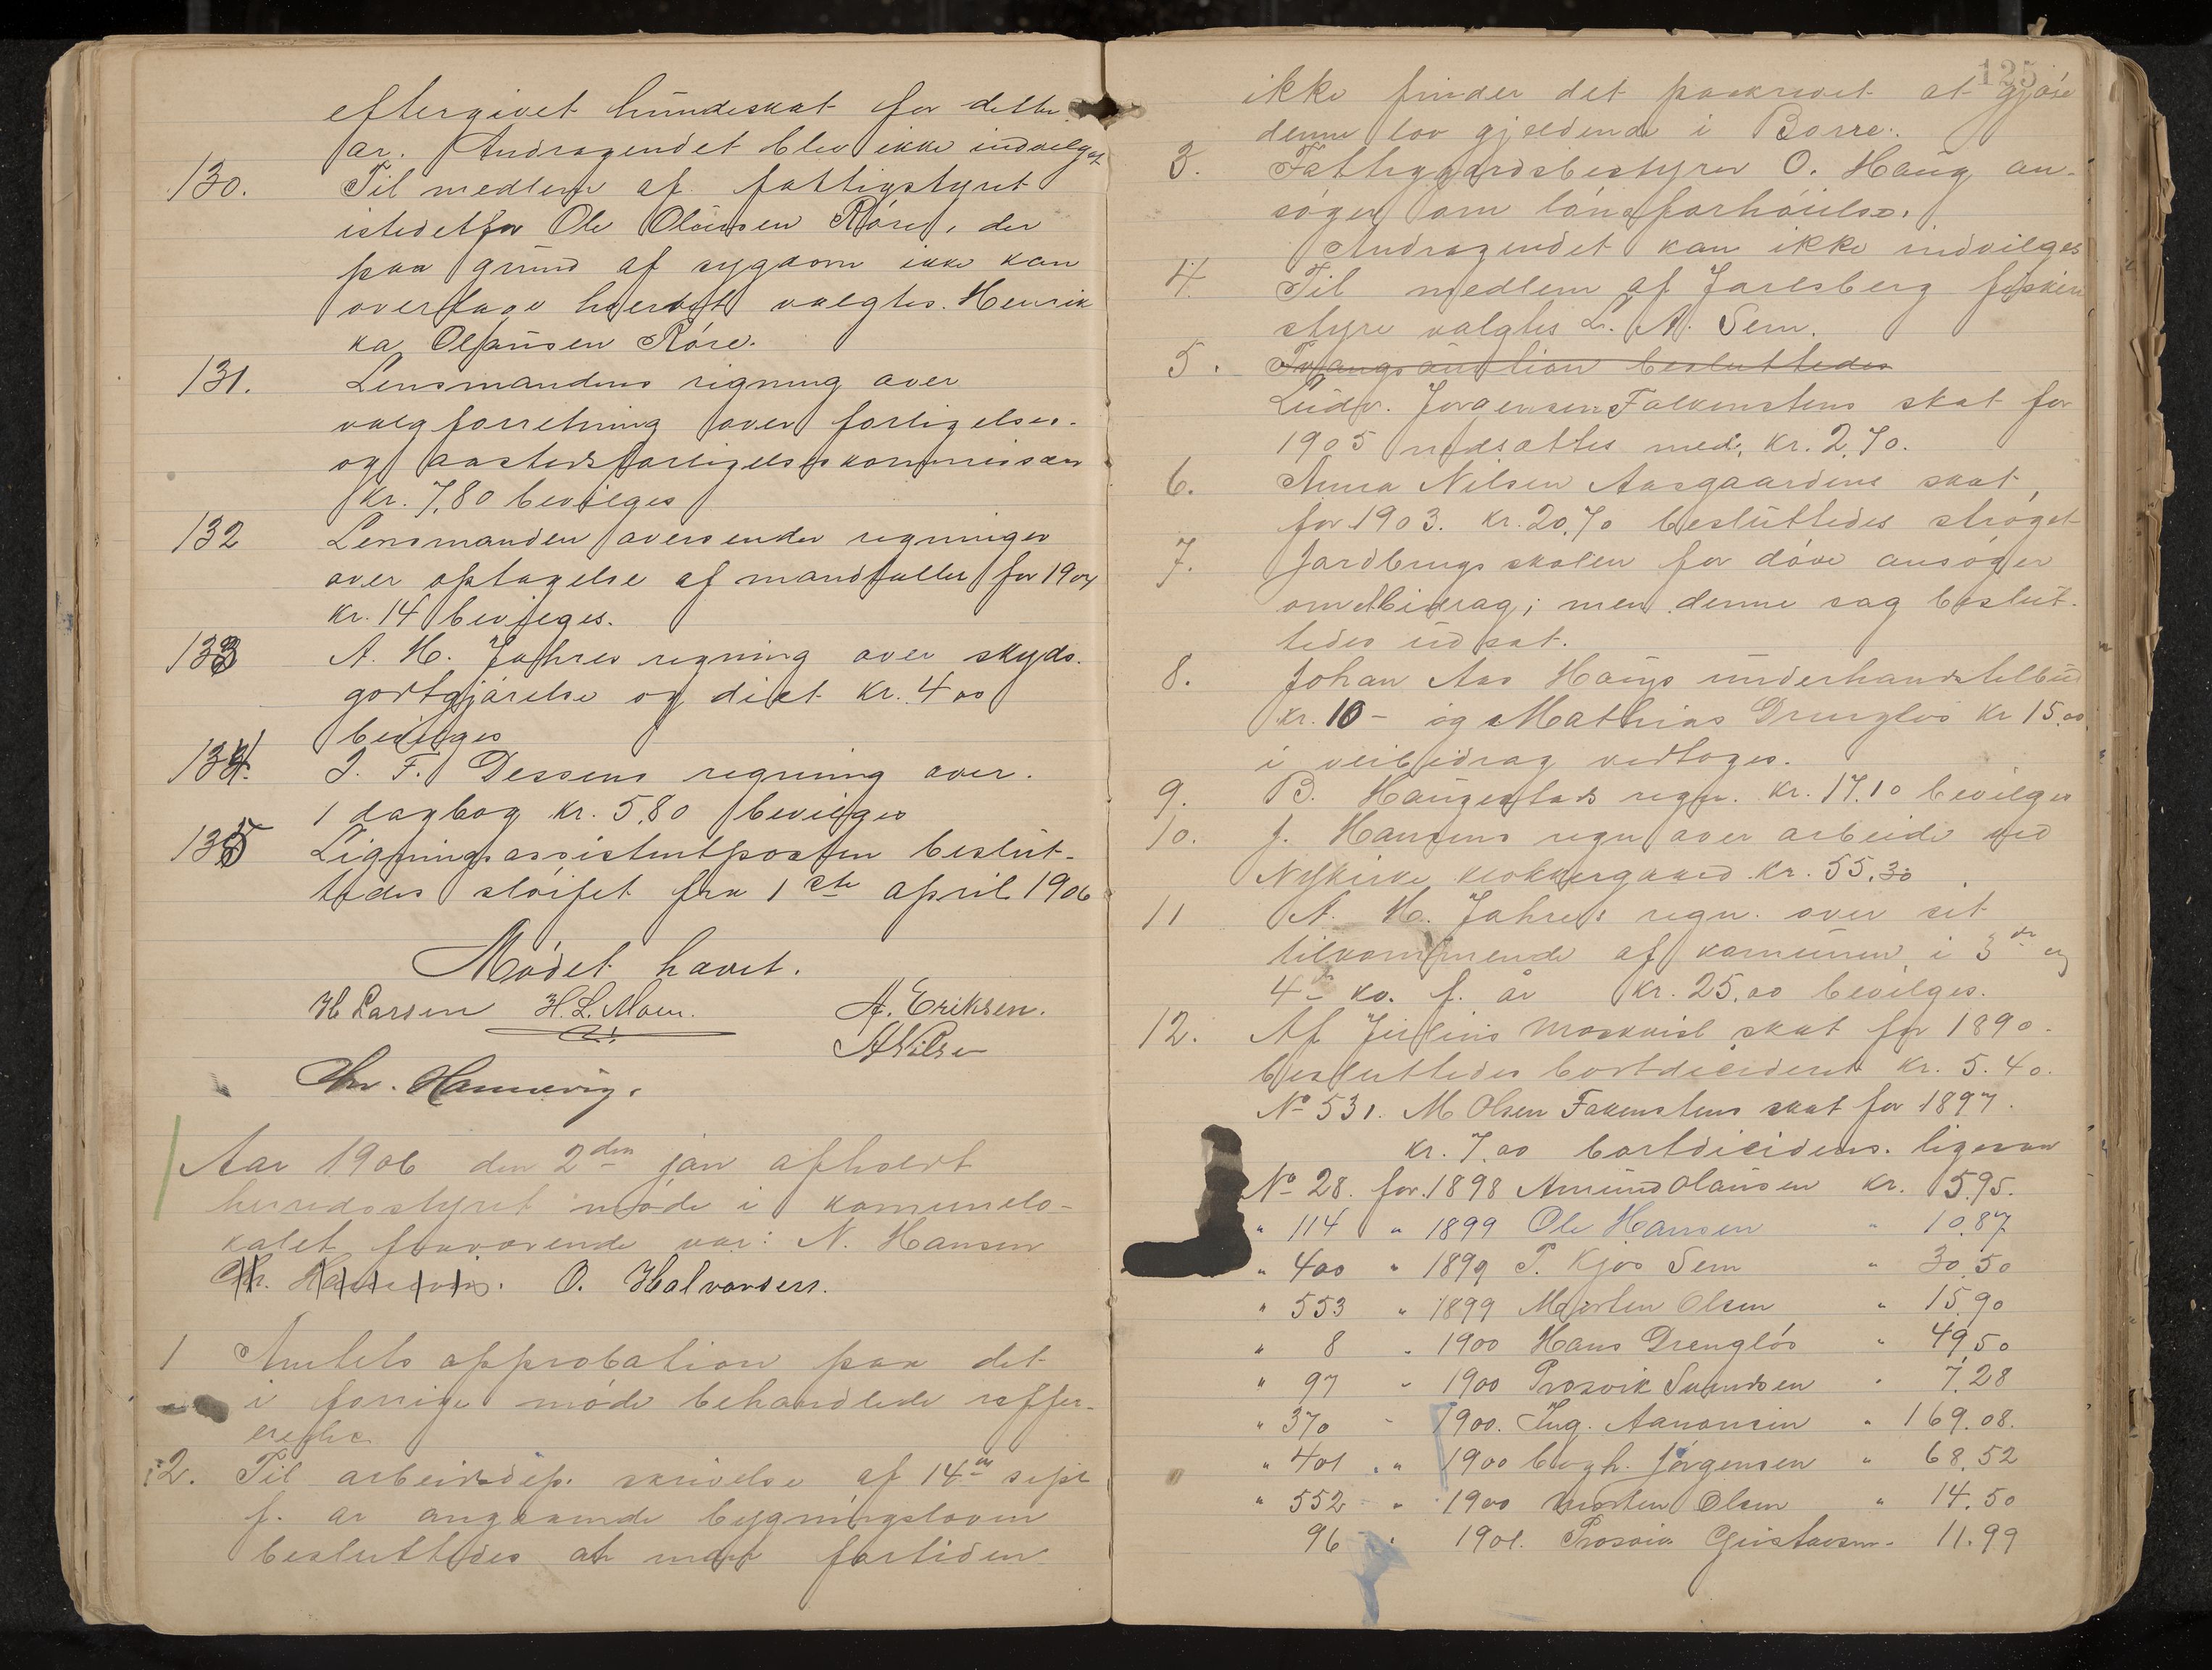 eftergivet hundeskat for dette
ar. Andragendet blev ikke indvilget
130. Til medlem af fattigstyret
istedetfor Ole Olausen Röre, der
paa grund af sygdom ikke kan
overtage hvervet valgtes Henrik
ka Olausen Röre.
131. Lensmandens rigning over
valgforretning over forligelses-
og aastedsforligelseskommissær
kr. 7,80 bevilges
132 Lensmanden oversender regninger
over optagelse af mandtaller for 1904
kr. 14 bevilges.
133 A. H. Jahres regning over skyds.
godtgjörelse og diet kr. 4 00
bevilges
134. J. F. Dessens regning over.
1 dagbog kr. 5,80 bevilges
135 Ligningsassistentposten beslut-
tedes slöifet fra 1ste april 1906
Mödet hævet.
H Larsen H. L. Moen. A. Eriksen.
A Nilsen
Chr. Hannevig.
Aar 1906 den 2den jan afholdt
herredsstyret möde i komunelo-
kalet fraværende var: N. Hansen
Chr. Hannevig. O. Halvorsen.
1 Amtets approbation paa det
i forrige möde behandlede reffer-
eredes
2. Til arbeidsdep. skrivelse af 14de sept
f. ar angaaende bygningsloven
besluttedes at man fortiden
125
ikke finder det paakrævet at gjöre
denne lov gjeldende i Borre.
3. Fattiggaardsbestyrer O. Haug an-
söger om lönsforhöielse.
Andragendet kan ikke indvilges
4. Til medlem af Jarlsberg fiskeri
styre valgtes L. A. Sem.
5. Tvangsauktion besluttedes
Ludv. Jorgensen Falkenstens skat for
1905 nedsattes med kr. 2,70.
6. Anna Nilsen Aasgaardens skat
for 1903. kr. 20,70 besluttedes ströget
7. Jordbrugsskolen for döve ansöger
om bidrag; men denne sag beslut-
tedes udsat.
8. Johan Aas Haugs underhandstilbud
kr. 10 - og Mathias Drenglös kr 15,00
i veibidrag vedtoges.
9. B. Haugestads regn. kr. 17,10 bevilges
10. J. Hansens regn over arbeide ved
Nykirke klokkergaard kr. 55,30
11 A. H. Jahres regn. over sit
tilkommende af komunen i 3die og
4de kv. f. år kr. 25,00 bevilges.
12. Af Julius Moskvil skat for 1890.
besluttedes bortdecideret kr. 5.40.
No 531. M Olsen Fakenstens skat for 1897.
kr. 7,00 bortdicideres. ligesaa
No 28. for 1898 Amund Olausen kr. 5,95.
" 114 " 1899 Ole Hansen " 10,87
" 400 " 1899 P. Kjös Sem " 30,50
" 553 " 1899 Morten Olsen " 15,90
" 8 " 1900 Hans Drenglös " 49,50
" 97 " 1900 Prosvik Svendsen " 7,28
" 370 " 1900. Ing. Aanonsen " 169.08.
" 401 " 1900 Jörgensen " 68,52
" 552 " 1900 Morten Olsen " 14,50
96 " 1901. Prosvik Gustavsen. 11.99